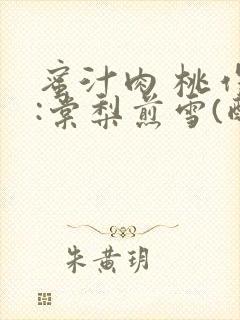 蜜汁肉桃作
:棠梨煎雪(
朱黄玥